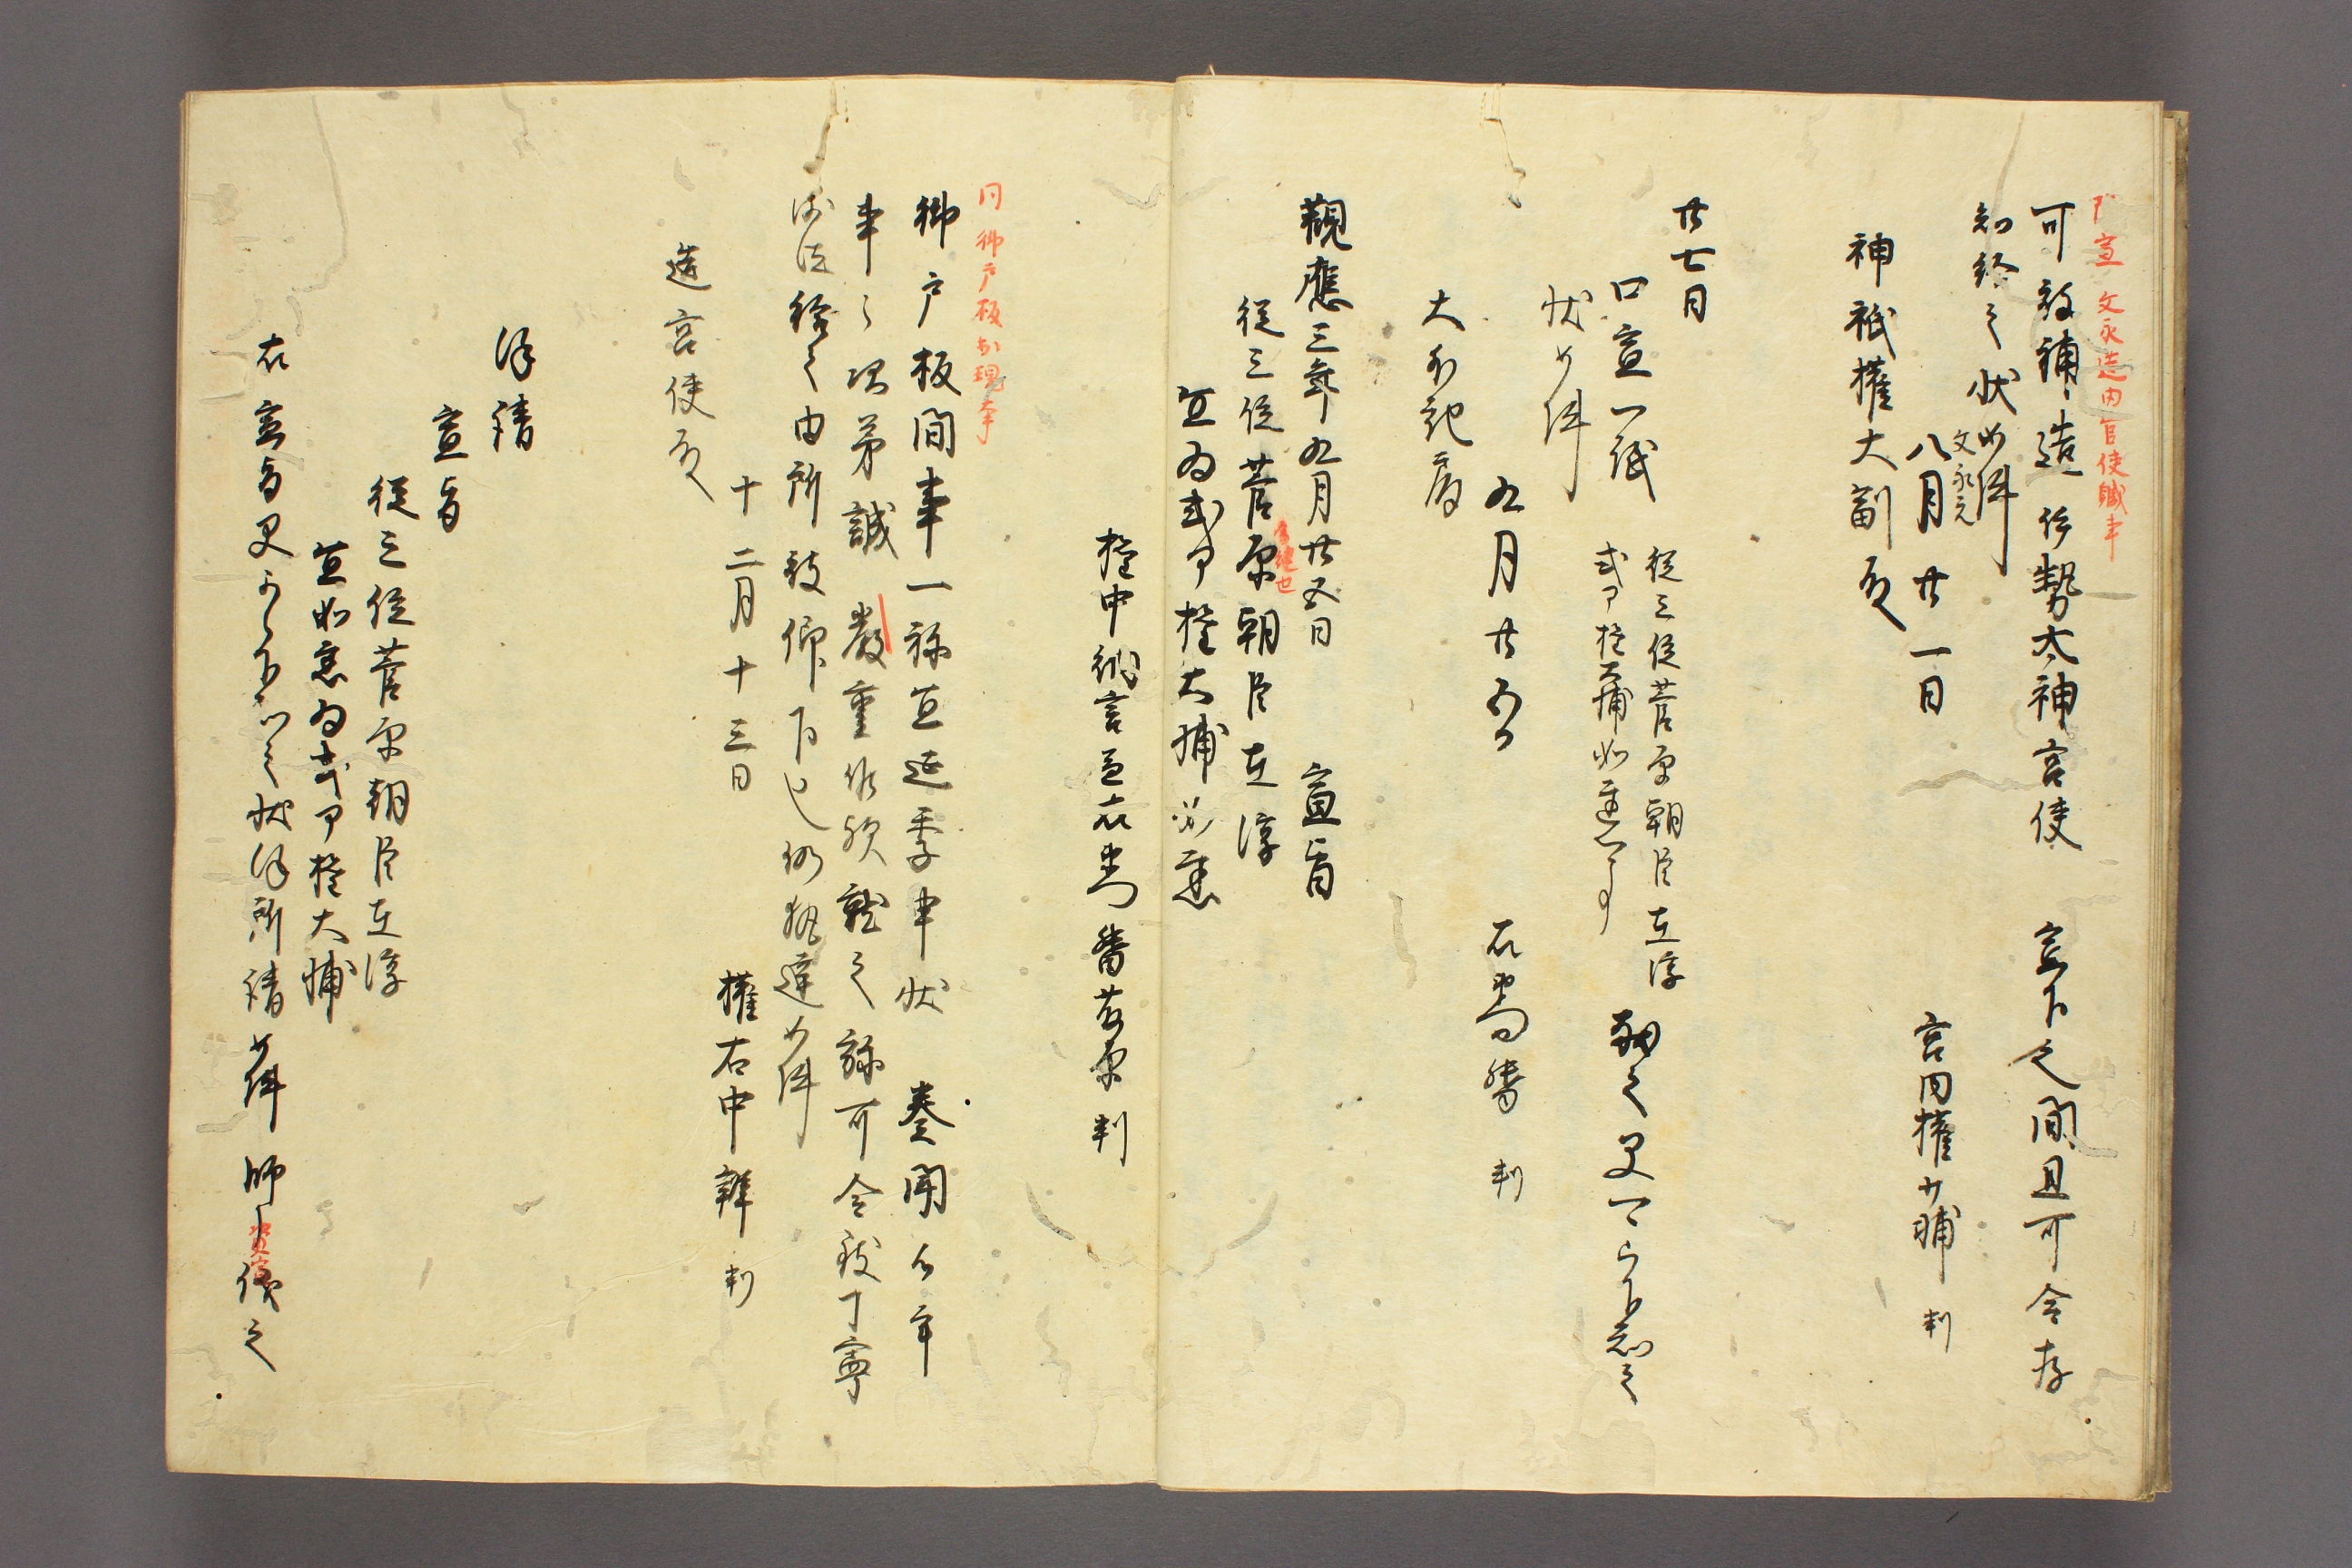 宣 文永造内宮使職事
可被補造伊勢太神宮使 宣下之間且可令存
知給之状如件
文永元
八月廿一日 宮内権少輔 判
神祇権大副殿
廿七日
口宣一紙
従三位菅原朝臣在淳
式部権大輔如元事
献之早可被下知之
状如件
九月廿五日 右馬督 判
大外記局
観應三年九月廿五日 宣旨
従三位菅原朝臣在淳
宜為式部権大輔如舊
権中納言兼右 督藤原 判
同御戸板出現事
御戸板間事一祢宜延季申状 奏聞候畢
事之次第誠厳重候歟就之弥可令致丁寧
沙汰給之由所被仰下也仍執達如件
十二月十三日 権右中辨 判
造宮使殿
請
宣旨
従三位菅原朝臣在淳
宜如舊為式部権大輔
右 宣旨早可 下 之状 所請如件師 之